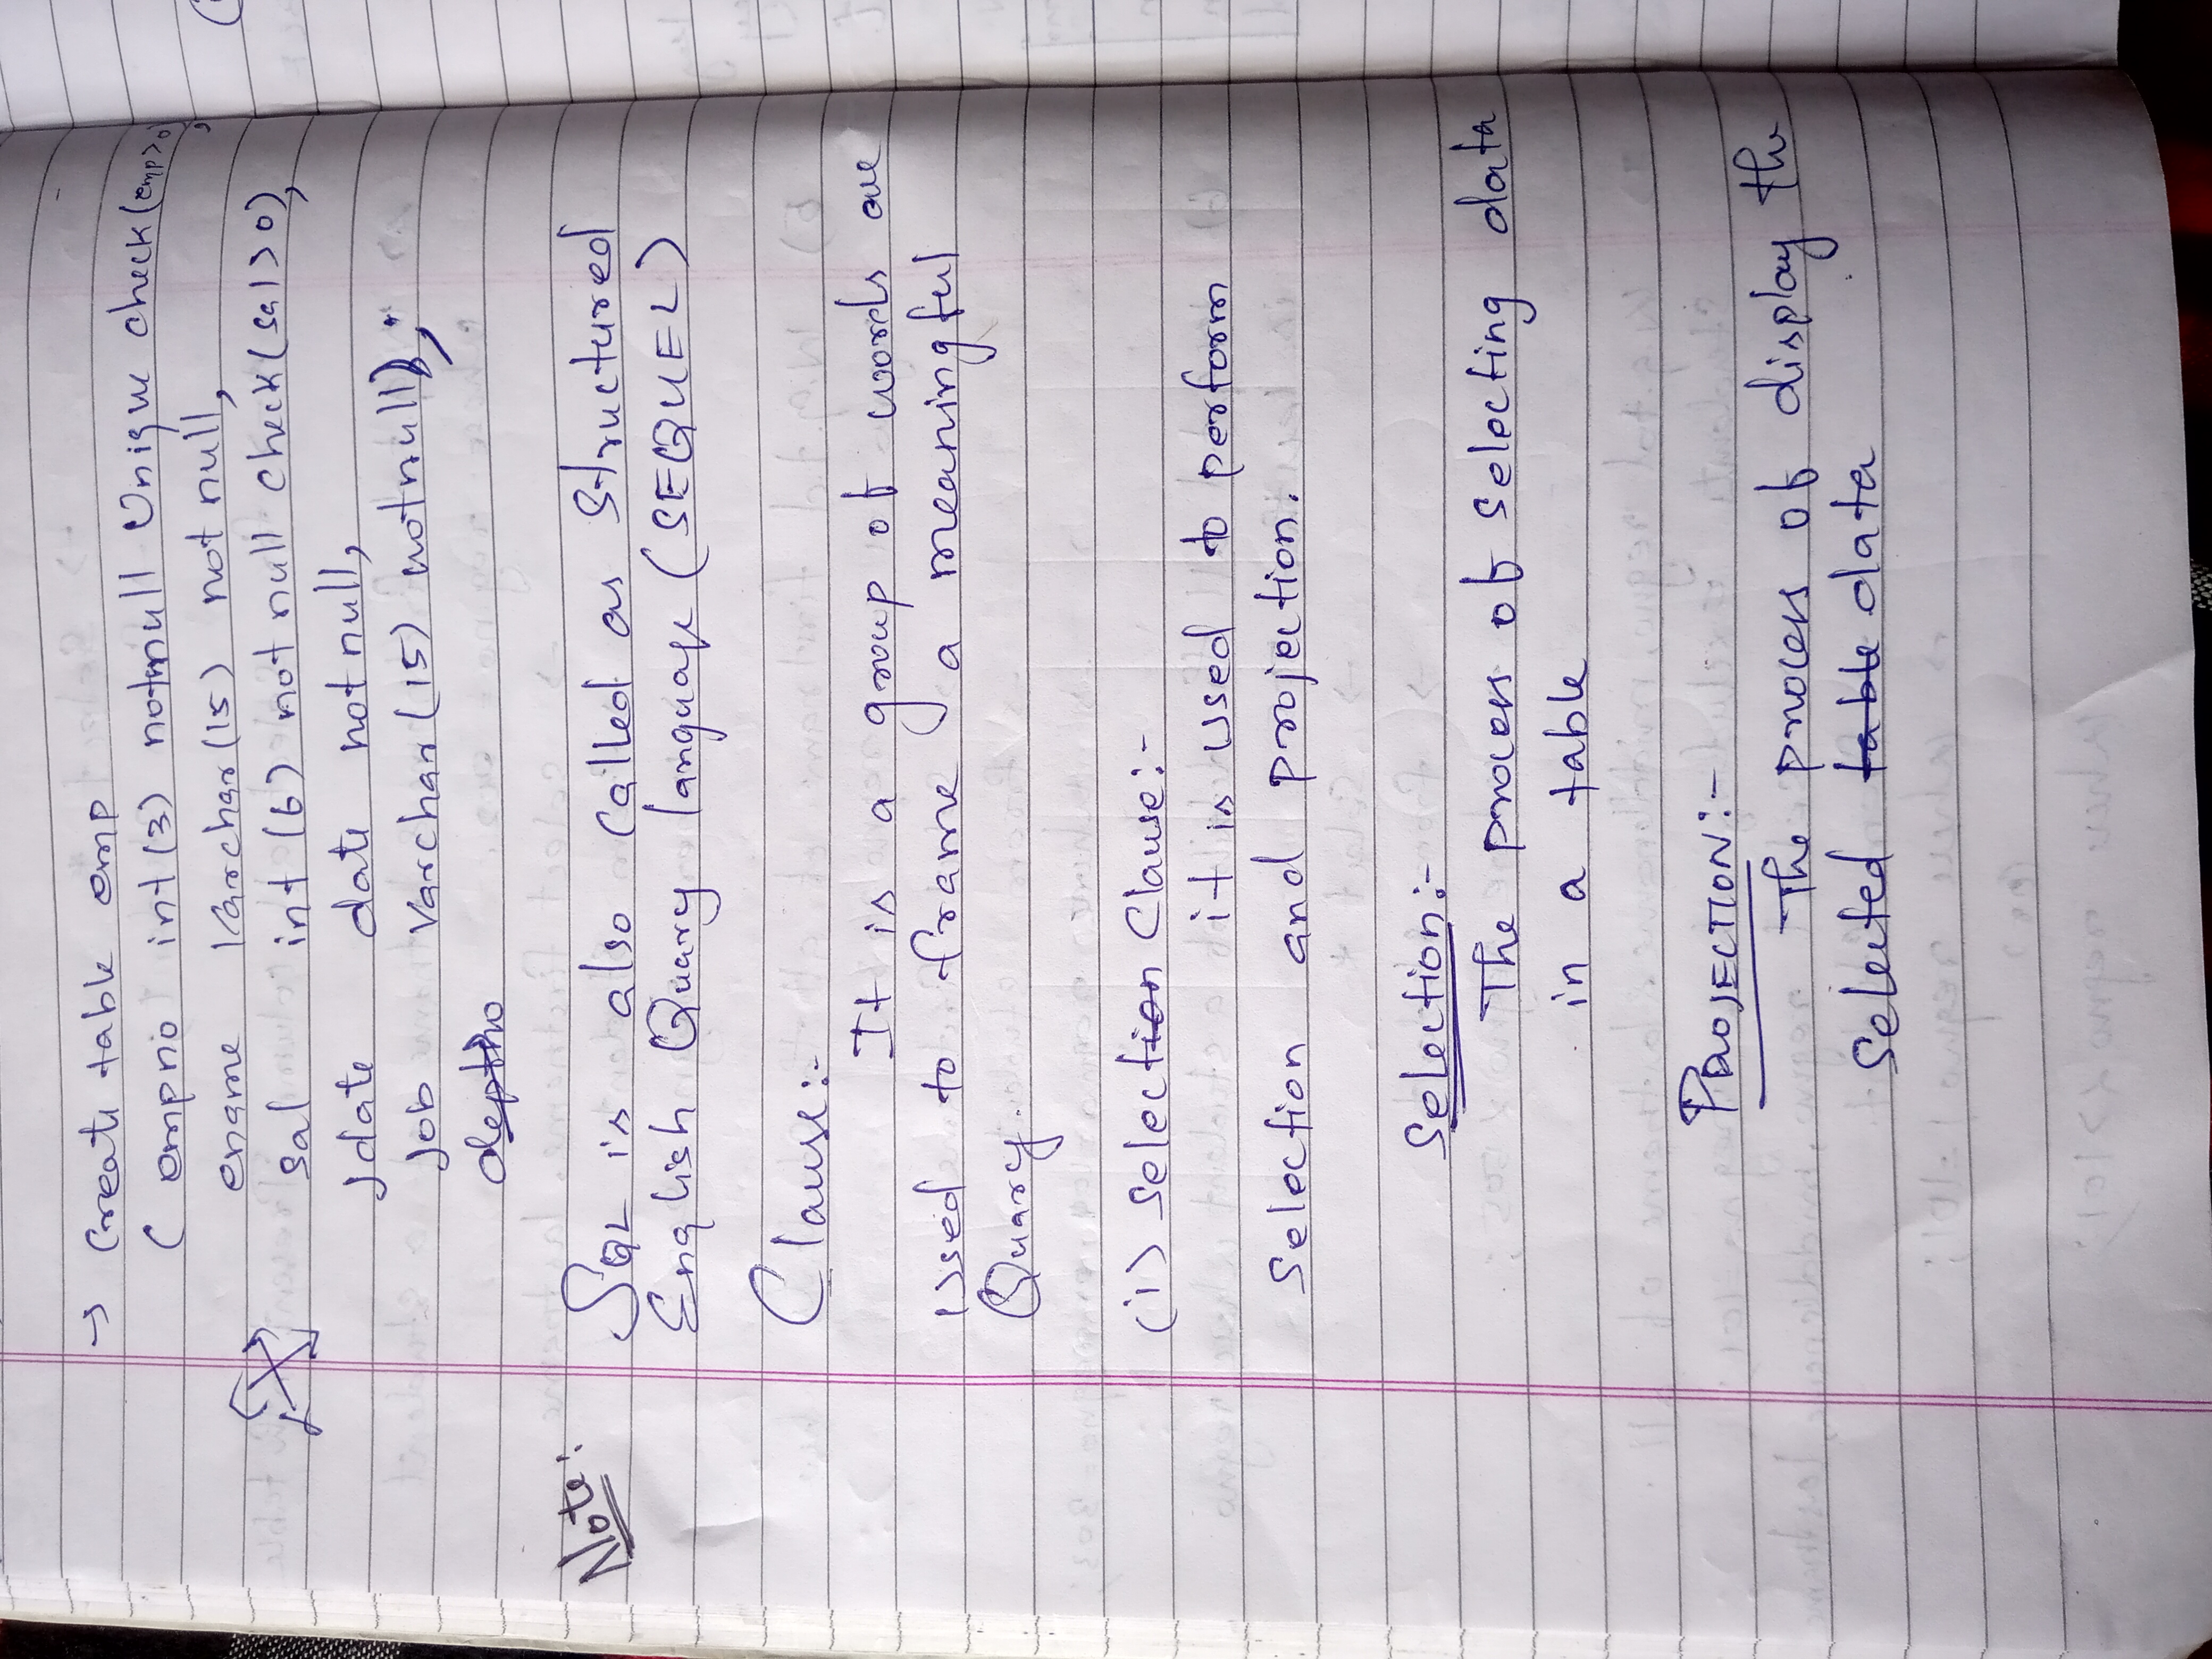 → Create table emp
( empno int (3) notnull Unique check (emp>0),
ename Varchar (15) not null,
sal int (6) not null check (sal>0),
Jdate date not null,
Job Varchar (15) notnull);
deptno
Note:
SQL is also called as Structured
English Quary language (SEQUEL)
Clause:-
It is a group of words are
used to frame a meaningful
Quary.
(i) Selection Clause:-
it is used to perform
Selection and projection.
Selection:-
The process of selecting data
in a table
PROJECTION:-
The process of display the
Selected table data